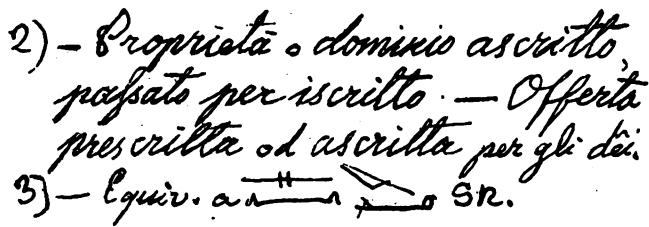 2) — Proprietà o dominio ascritto,
passato per iscritto. — Offerta
prescritta od ascritta per gli dêi.
3) — Equiv. a SR.